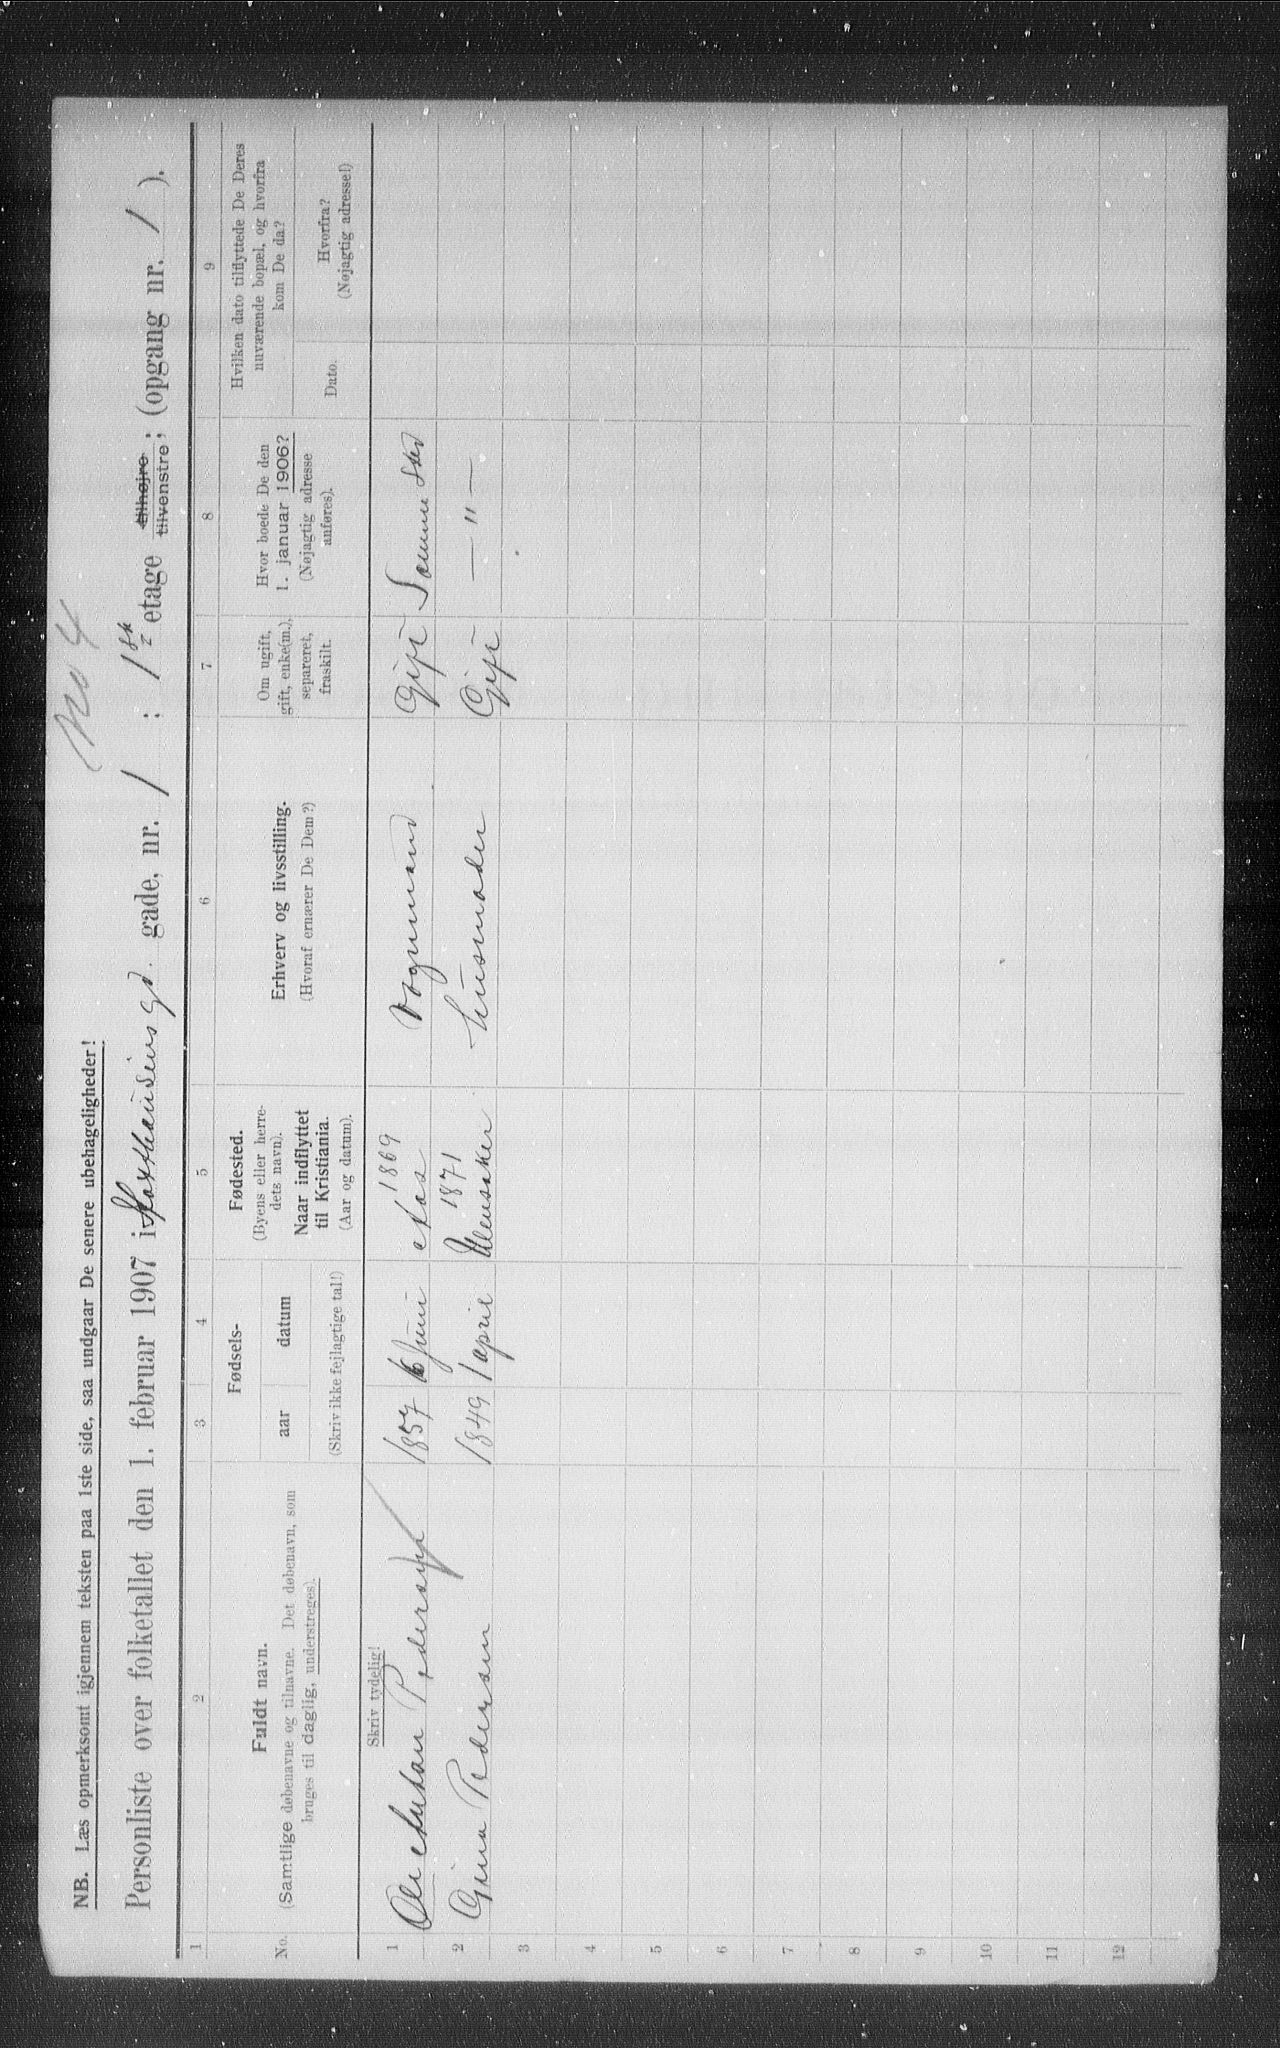 No 4
NB. Læs opmerksomt igjennem teksten paa 1ste side, saa undgaar De senere ubehageligheder!
Personliste over folketallet den 1. februar 1907 i Haxthausens gd. gade, nr. 1 : 1ste etage tilhøjre tilvenstre; (opgang nr. 1 ).
1 2 3 4 5 6 7 8 9
No.
Fuldt navn.
(Samtlige døbenavne og tilnavne. Det døbenavn, som
bruges til daglig, understreges).
Fødsels-
aar datum
(Skriv ikke fejlagtige tal!)
Fødested.
(Byens eller herre-
dets navn).
Naar indflyttet
til Kristiania.
(Aar og datum).
Erhverv og livsstilling.
(Hvoraf ernærer De Dem?)
Om ugift,
gift, enke(m.),
separeret,
fraskilt.
Hvor boede De den
1. januar 1906?
(Nøjagtig adresse
anføres).
Hvilken dato tilflyttede De Deres
nuværende bopæl, og hvorfra
kom De da?
Dato.
Hvorfra?
(Nøjagtig adresse!)
Skriv tydelig!
1 Ole Pedersen 1857 6 Juni Aas 1869 Vognmand Gift Samme Sted
2 Gina Pedersen 1849 1 april Ullensaker 1871 husmoder Gift — " —
3
4
5
6
7
8
9
10
11
12